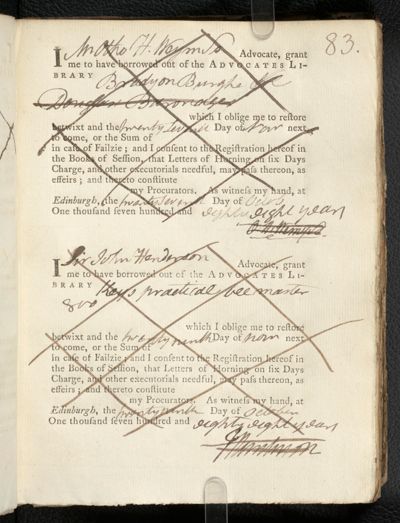 83.
I Mr Otho H. Wemyss Advocate, grant
me to have borrowed out of the ADVOCATES LI-
BRARY
Douglas Baronage
which I oblige me to restore
betwixt and the twenty seventh Day of Novr next
to come, or the Sum of
in case of Failzie; and I consent to the Registration hereof in
the Books of Session, that Letters of Horning on six Days
Charge, and other executorials needful, may pass thereon, as
effeirs; and thereto constitute
my Procurators. As witness my hand, at
Edinburgh, the twenty seventh Day of Octr
One thousand seven hundred and eighty eight years
I Sir John Henderson Advocate, grant
me to have borrowed out of the ADVOCATES LI-
BRARY
Keys practical bee master
which I oblige me to restore
betwixt and the twenty ninth Day of Novr next
to come, or the Sum of
in case of Failzie; and I consent to the Registration hereof in
the Books of Session, that Letters of Horning on six Days
Charge, and other executorials needful, may pass thereon, as
effeirs; and thereto constitute
my Procurators. As witness my hand, at
Edinburgh, the twenty ninth Day of October
One thousand seven hundred and eighty eight years